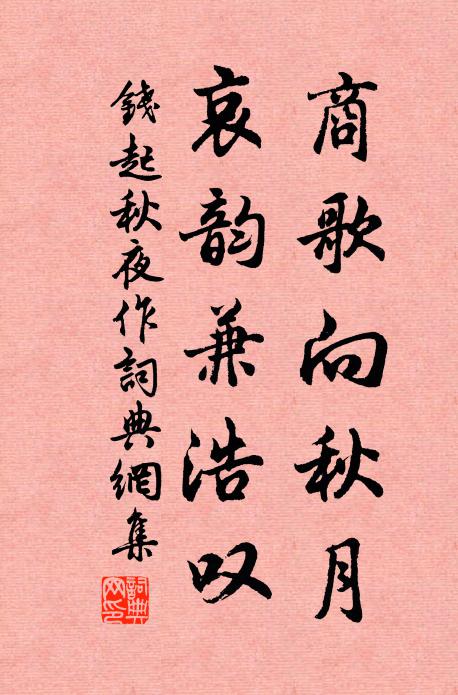 商歌向秋月
哀韵兼浩叹
錢起秋夜作詞典網集
詞典網印